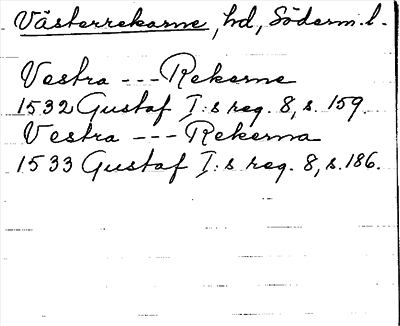 Västerrekarne, hd, Söderm. l.
Vestra --- Rekarne
1532 Gustaf I:s reg. 8, s. 159.
Vestra --- Rekarna
1533 Gustaf I:s reg. 8, s. 186.